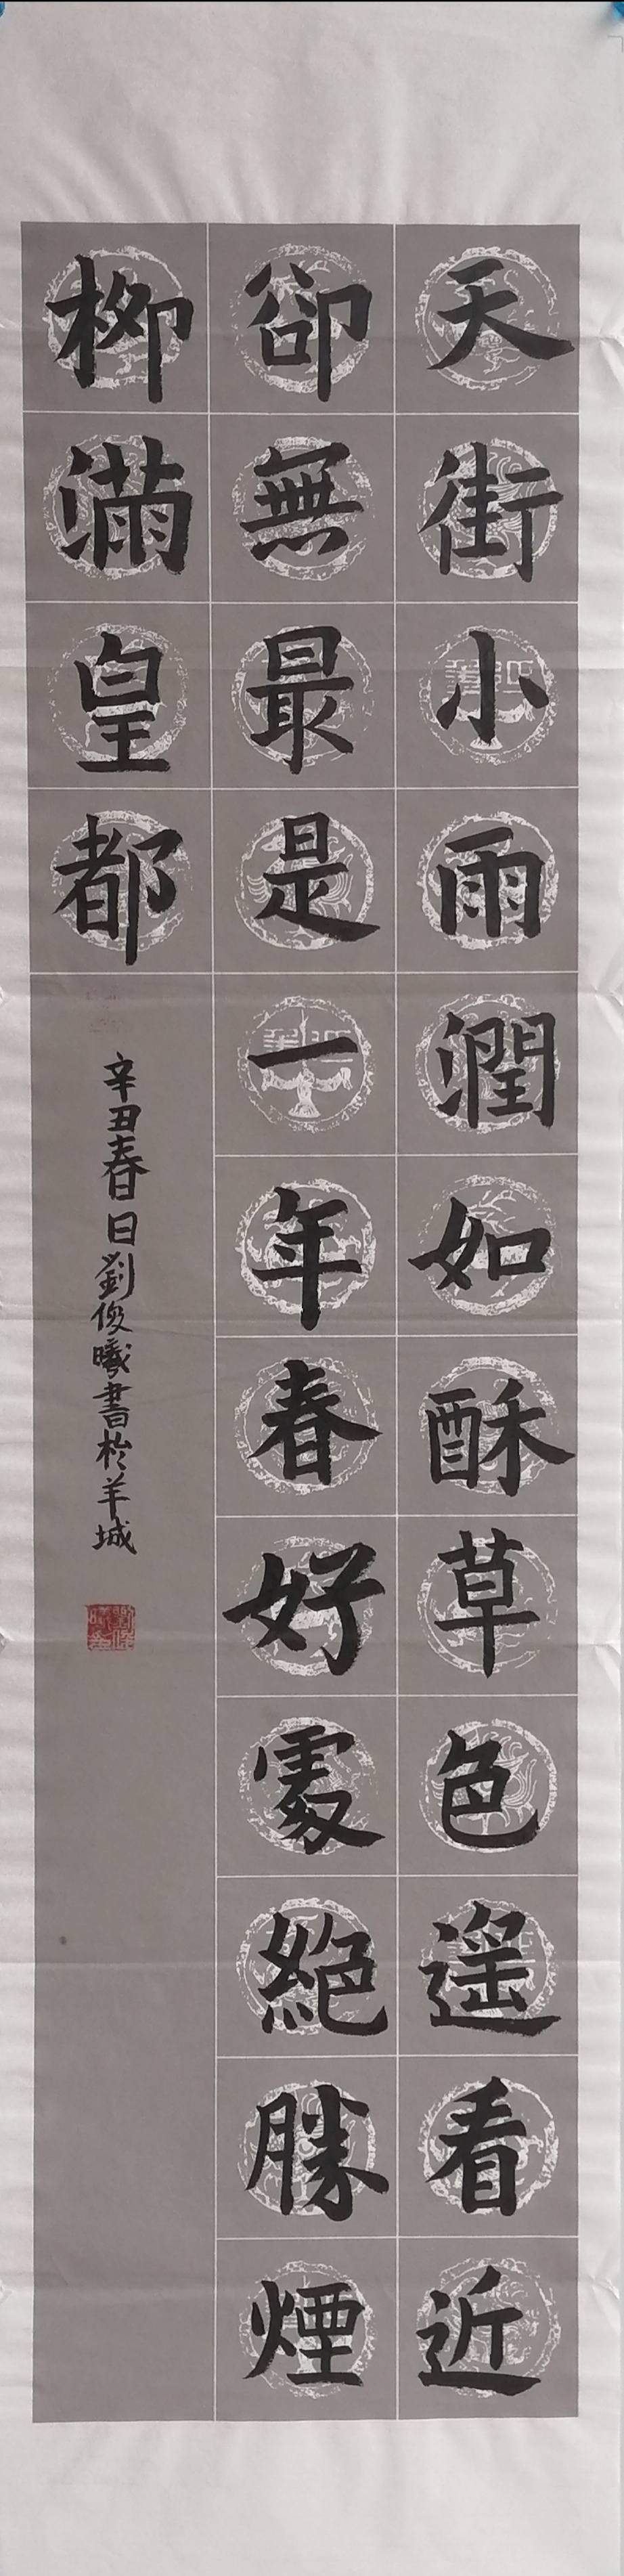 天街小雨潤如酥草色遥看近
卻無最是一年春好處絕勝煙
柳滿皇都
辛丑春日劉俊曦書於羊城